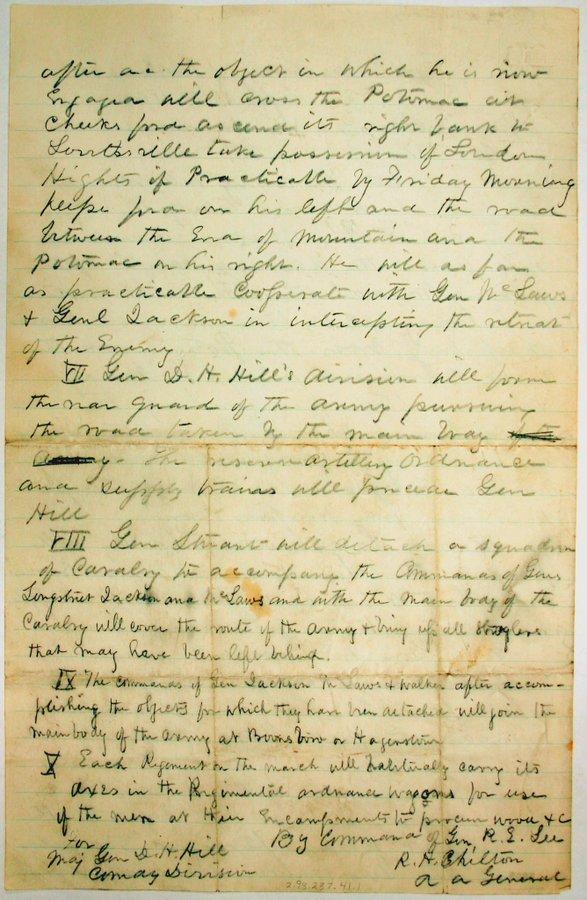 after acc the object in which he is now
Engaged will cross the Potomac at
Cheeks ford ascend its right bank to
Lovittsville take possession of Loudon
Hights if Practicable by Friday Morning
Keeps ford on his left and the road
between the End of Mountain and the
Potomac on his right. He will as far
as practicable Cooperate with Gen McLaws
& Genl Jackson in intercepting the retreat
of the Enemy
VII Gen D. H. Hill's division will form
the rear guard of the army pursuing
the road taken by the main body of the
army. The reserve artillery Ordnance
and supply trains will precede Gen
Hill
VIII Gen Stuart will detach a squadron
of Cavalry to accompany the Commands of Gens
Longstreet Jackson and McLaws and with the main body of the
Cavalry will cover the route of the Army & bring up all straglers
that may have been left behind.
IX The commands of Gen Jackson McLaws & Walker after accom-
plishing the objects for which they have been detached will join the
main body of the army at Boonsboro or Hagerstown
X Each Regiment on the march will habitually carry its
axes in the Regimental ordnance wagons for use
of the men at their Encampments to procure wood &c
By Command of Gen. R. E. Lee
For
R. H. Chilton
Maj Gen D. H. Hill
A A General
Comdg Division
2.93.237.41.1